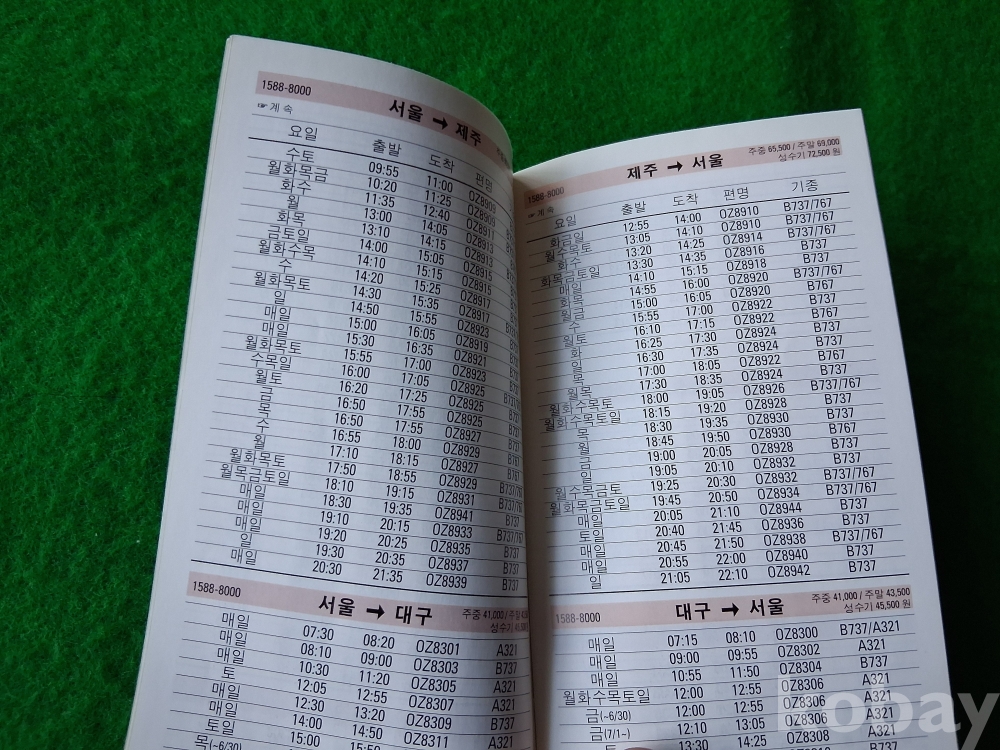 1588-8000 서울 → 제주
☞ 계속
요일 출발 도착 편명
수토 09:55 11:00 OZ8909
월화목금 10:20 11:25 OZ8909
화수 11:35 12:40 OZ8911
월 13:00 14:05 OZ8913
화목 13:10 14:15 OZ8913
금토일 14:00 15:05 OZ8915
월화수목 14:10 15:15 OZ8915
수 14:20 15:25 OZ8917
월화목토 14:30 15:35 OZ8917
일 14:50 15:55 OZ8923
매일 15:00 16:05 OZ8919
매일 15:30 16:35 OZ8921
월화목토 15:55 17:00 OZ8923
수목일 16:00 17:05 OZ8925
월토 16:20 17:25 OZ8925
금 16:50 17:55 OZ8925
목 16:50 17:55 OZ8927
수 16:55 18:00 OZ8929
월 17:10 18:15 OZ8927
월화목토 17:50 18:55 OZ8929
월목금토일 18:10 19:15 OZ8931 B737/76
매일 18:30 19:35 OZ8941 B737
매일 19:10 20:15 OZ8933 B737/767
매일 19:20 20:25 OZ8935 B737
일 19:30 20:35 OZ8937 B737
매일 20:30 21:35 OZ8939 B737
1588-8000 서울 → 대구 주중 41,000 / 주말
성수기
매일 07:30 08:20 OZ8301 A321
매일 08:10 09:00 OZ8303 B737
매일 10:30 11:20 OZ8305 A321
토 12:05 12:55 OZ8307 A321
매일 12:30 13:20 OZ8309 B737
매일 14:00 14:50 OZ8311 A321
토일 15:00
목(~6/30)
1588-8000 제주 → 서울 주중 65,500 / 주말 69,000
성수기 72,500 원
☞ 계속
요일 출발 도착 편명 기종
화금일 12:55 14:00 OZ8910 B737/767
월수목토 13:05 14:10 OZ8910 B737/767
화수 13:20 14:25 OZ8914 B737/767
화목금토일 13:30 14:35 OZ8916 B737
매일 14:10 15:15 OZ8918 B737
화목 14:55 16:00 OZ8920 B737/767
월금 15:00 16:05 OZ8920 B767
수 15:55 17:00 OZ8922 B737
월토 16:10 17:15 OZ8922 B767
화 16:25 17:30 OZ8924 B737
일 16:30 17:35 OZ8924 B737
목 17:00 18:05 OZ8922 B767
월목 17:30 18:35 OZ8924 B737
월화수목토 18:00 19:05 OZ8926 B737/767
월화수목토일 18:15 19:20 OZ8928 B737
목 18:30 19:35 OZ8930 B737
월 18:45 19:50 OZ8930 B767
금 19:00 20:05 OZ8928 B737
일 19:05 20:10 OZ8932 B737
월수목금토 19:25 20:30 OZ8932 B737/767
월화목금토일 19:45 20:50 OZ8934 B737/767
매일 20:05 21:10 OZ8944 B737
토일 20:40 21:45 OZ8936 B737
매일 20:45 21:50 OZ8938 B737/767
매일 20:55 22:00 OZ8940 B737
일 21:05 22:10 OZ8942 B737
1588-8000 대구 → 서울 주중 41,000 / 주말 43,500
성수기 45,500 원
매일 07:15 08:10 OZ8300 B737/A321
매일 09:00 09:55 OZ8302 A321
매일 10:55 11:50 OZ8304 B737
월화수목토일 12:00 12:55 OZ8306 A321
금(~6/30) 12:00 12:55 OZ8306 A321
금(7/1~) 12:10 13:05 OZ8306 A321
13:30 14:25 OZ8308 A321
kobay